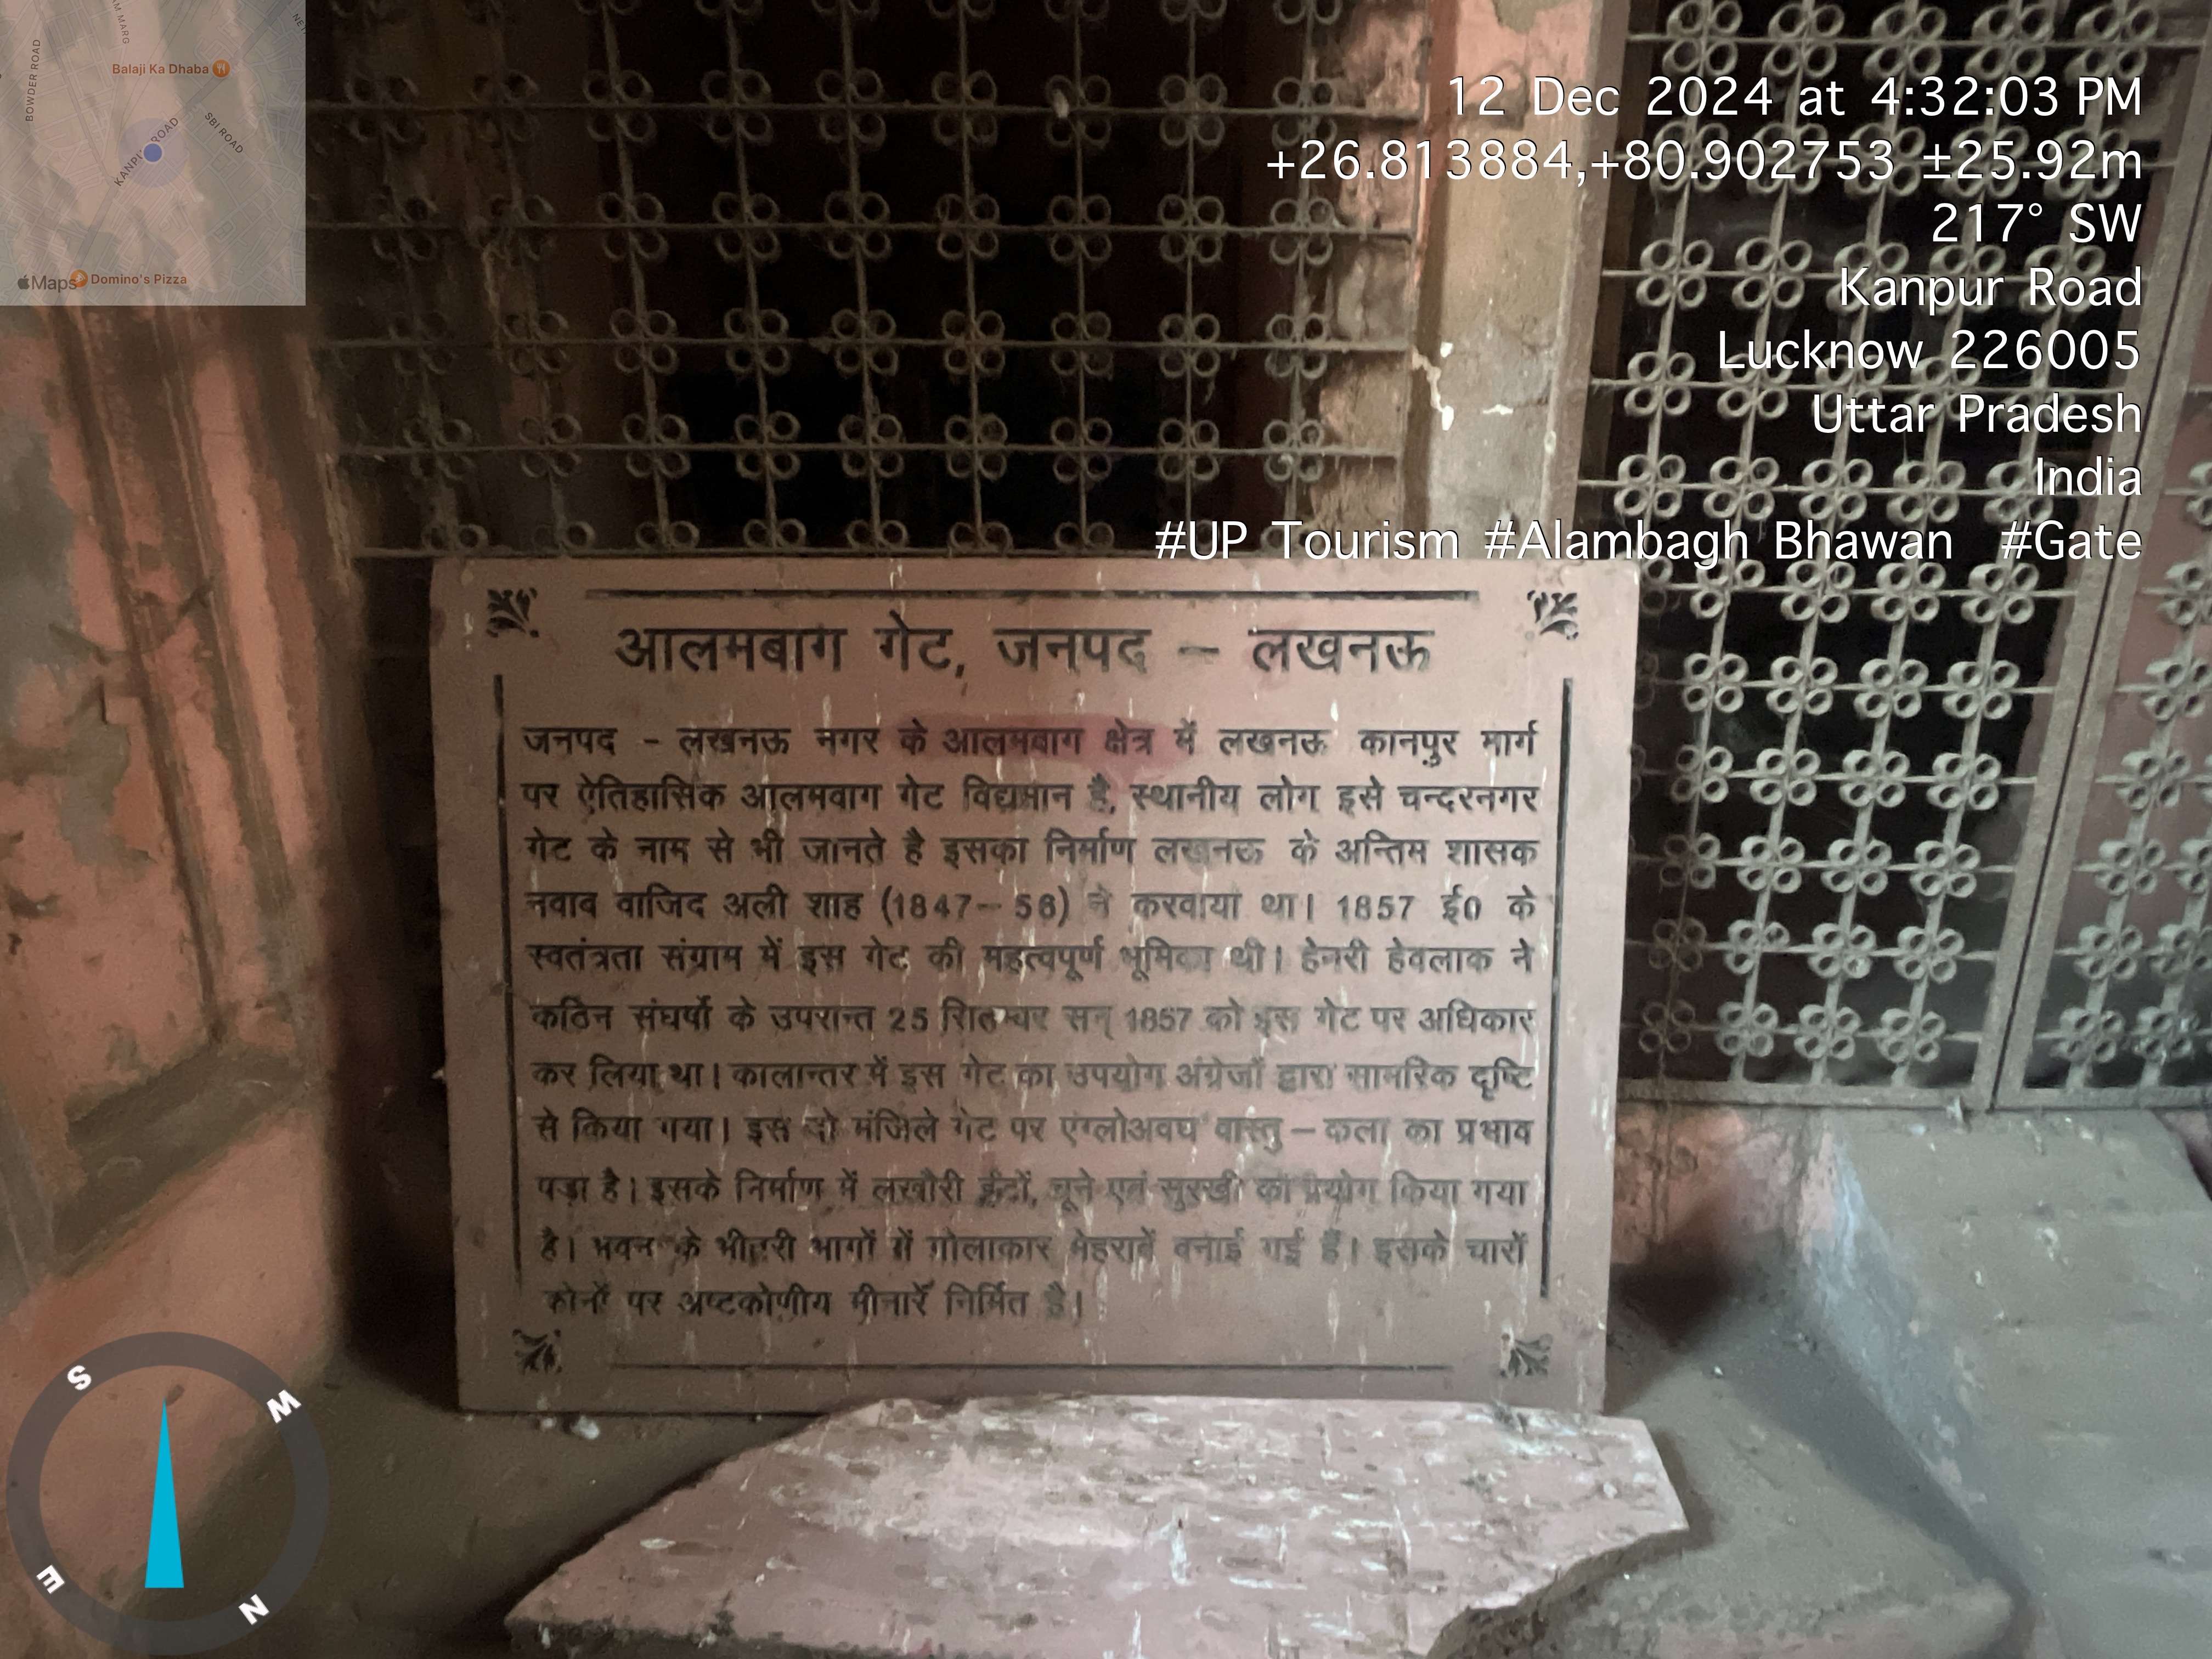 BOWDER ROAD
Balaji Ka Dhaba
SBI ROAD
Maps
Domino's Pizza
12 Dec 2024 at 4:32:03 PM
+26.813884,+80.902753 ±25.92m
217° SW
Kanpur Road
Lucknow 226005
Uttar Pradesh
India
#UP Tourism #Alambagh Bhawan #Gate
आलमबाग गेट, जनपद – लखनऊ
जनपद – लखनऊ नगर के आलमबाग क्षेत्र में लखनऊ कानपुर मार्ग
पर ऐतिहासिक आलमवाग गेट विद्यमान है, स्थानीय लोग इसे चन्दरनगर
गेट के नाम से भी जानते है इसका निर्माण लखनऊ के अन्तिम शासक
नवाव वाजिद अली शाह (1847– 56) ने करवाया था। 1857 ई0 के
स्वतंत्रता संग्राम में इस गेट की महत्वपूर्ण भूमिका थी। हेनरी हेवलाक ने
कठिन संघर्षो के उपरान्त 25 सितम्बर सन् 1857 को इस गेट पर अधिकार
कर लिया था। कालान्तर में इस गेट का उपयोग अंग्रेजों द्वारा सामरिक दृष्टि
से किया गया। इस दो मंजिले गेट पर एंग्लोअवध वास्तु – कला का प्रभाव
पड़ा है। इसके निर्माण में लखौरी ईंटों, चूने एवं सुरखी का प्रयोग किया गया
है। भवन के भीतरी भागों में गोलाकार मेहरावें वनाई गई हैं। इसके चारों
कोनों पर अष्टकोणीय मीनारें निर्मित है।
S
W
E
N